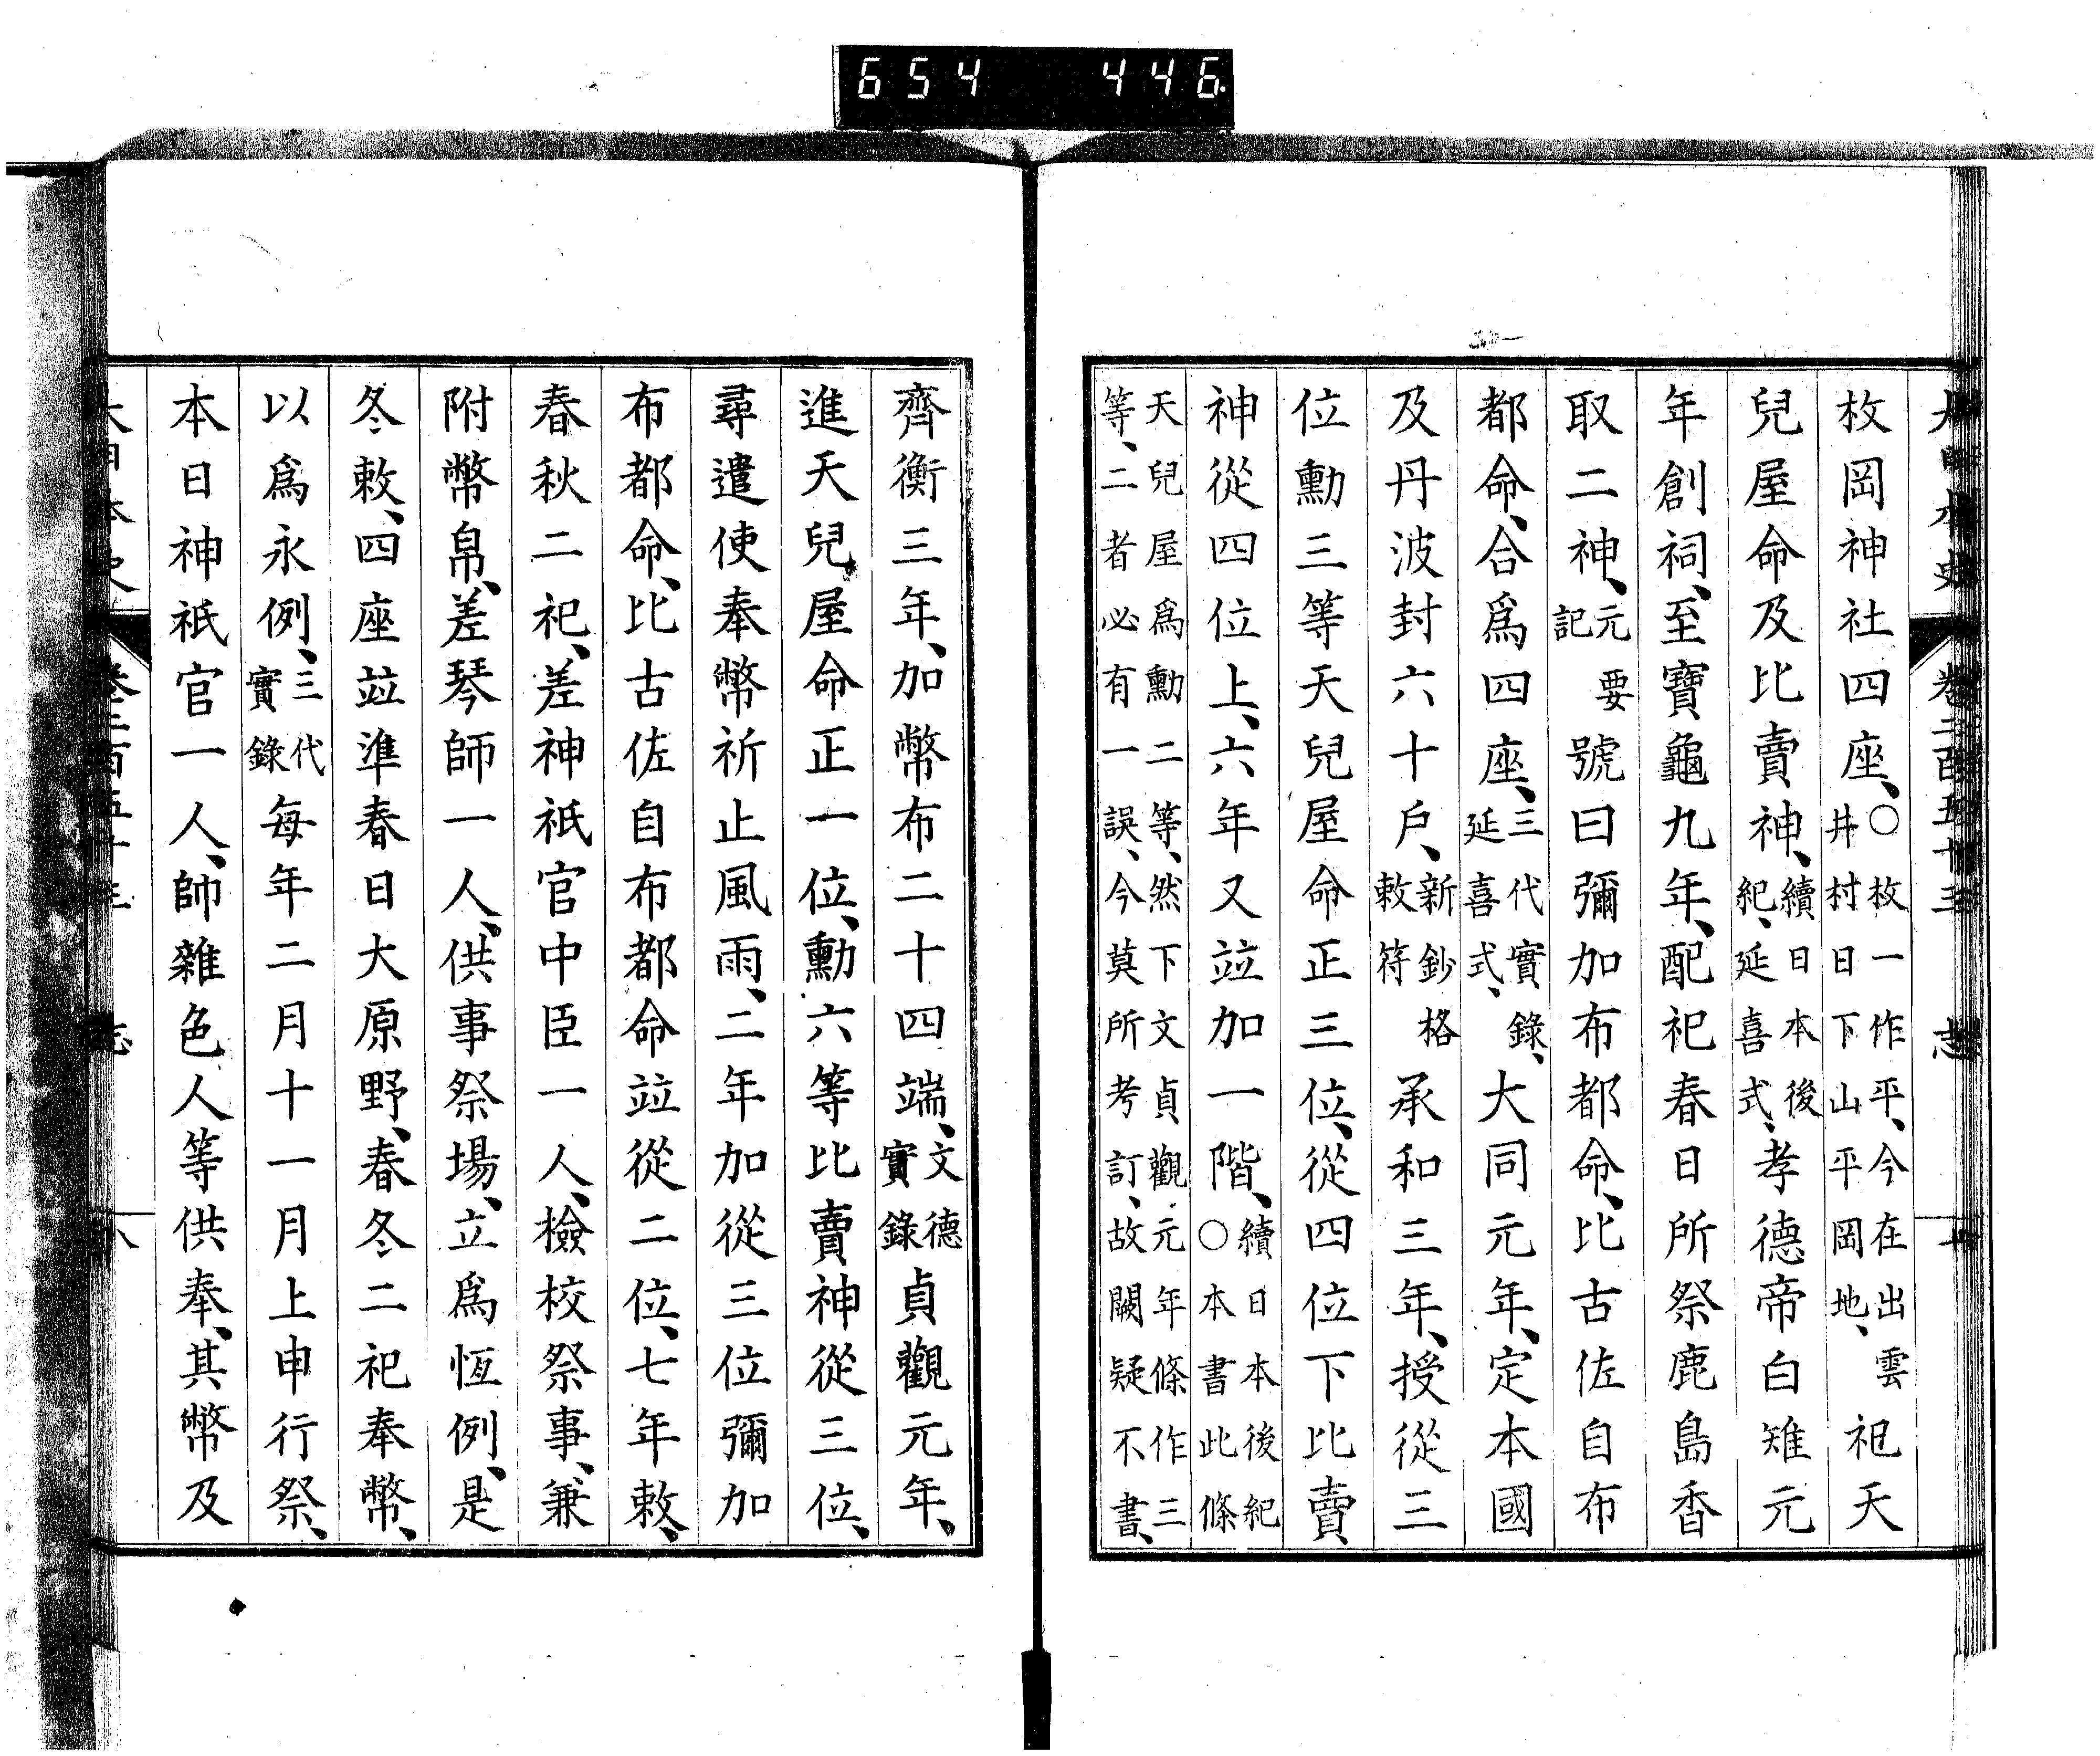 654 446
大日本史 卷二百五十三 志
枚岡神社四座、○枚一作平、今在出雲井村日下山平岡地、祀天
兒屋命及比賣神、續日本後紀、延喜式、孝德帝白雉元
年創祠、至寶龜九年、配祀春日所祭鹿島香
取二神、元要記號曰彌加布都命、比古佐自布
都命、合爲四座、三代實錄、延喜式、大同元年、定本國
及丹波封六十戶、新鈔格敕符承和三年、授從三
位勳三等天兒屋命正三位、從四位下比賣
神從四位上、六年又竝加一階、續日本後紀○本書此條
天兒屋爲勳二等、然下文貞觀元年條作三
等、二者必有一誤、今莫所考訂、故闕疑不書、
齊衡三年、加幣布二十四端、文德實錄貞觀元年、
進天兒屋命正一位、勳六等比賣神從三位、
尋遣使奉幣祈止風雨、二年加從三位彌加
布都命、比古佐自布都命竝從二位、七年敕、
春秋二祀、差神祇官中臣一人、檢校祭事、兼
附幣帛、差琴師一人、供事祭場、立爲恆例、是
冬敕、四座竝準春日大原野、春冬二祀奉幣、
以爲永例、三代實錄每年二月十一月上申行祭、
本日神祇官一人、帥雜色人等供奉、其幣及
大日本史 卷二百五十三 志 八